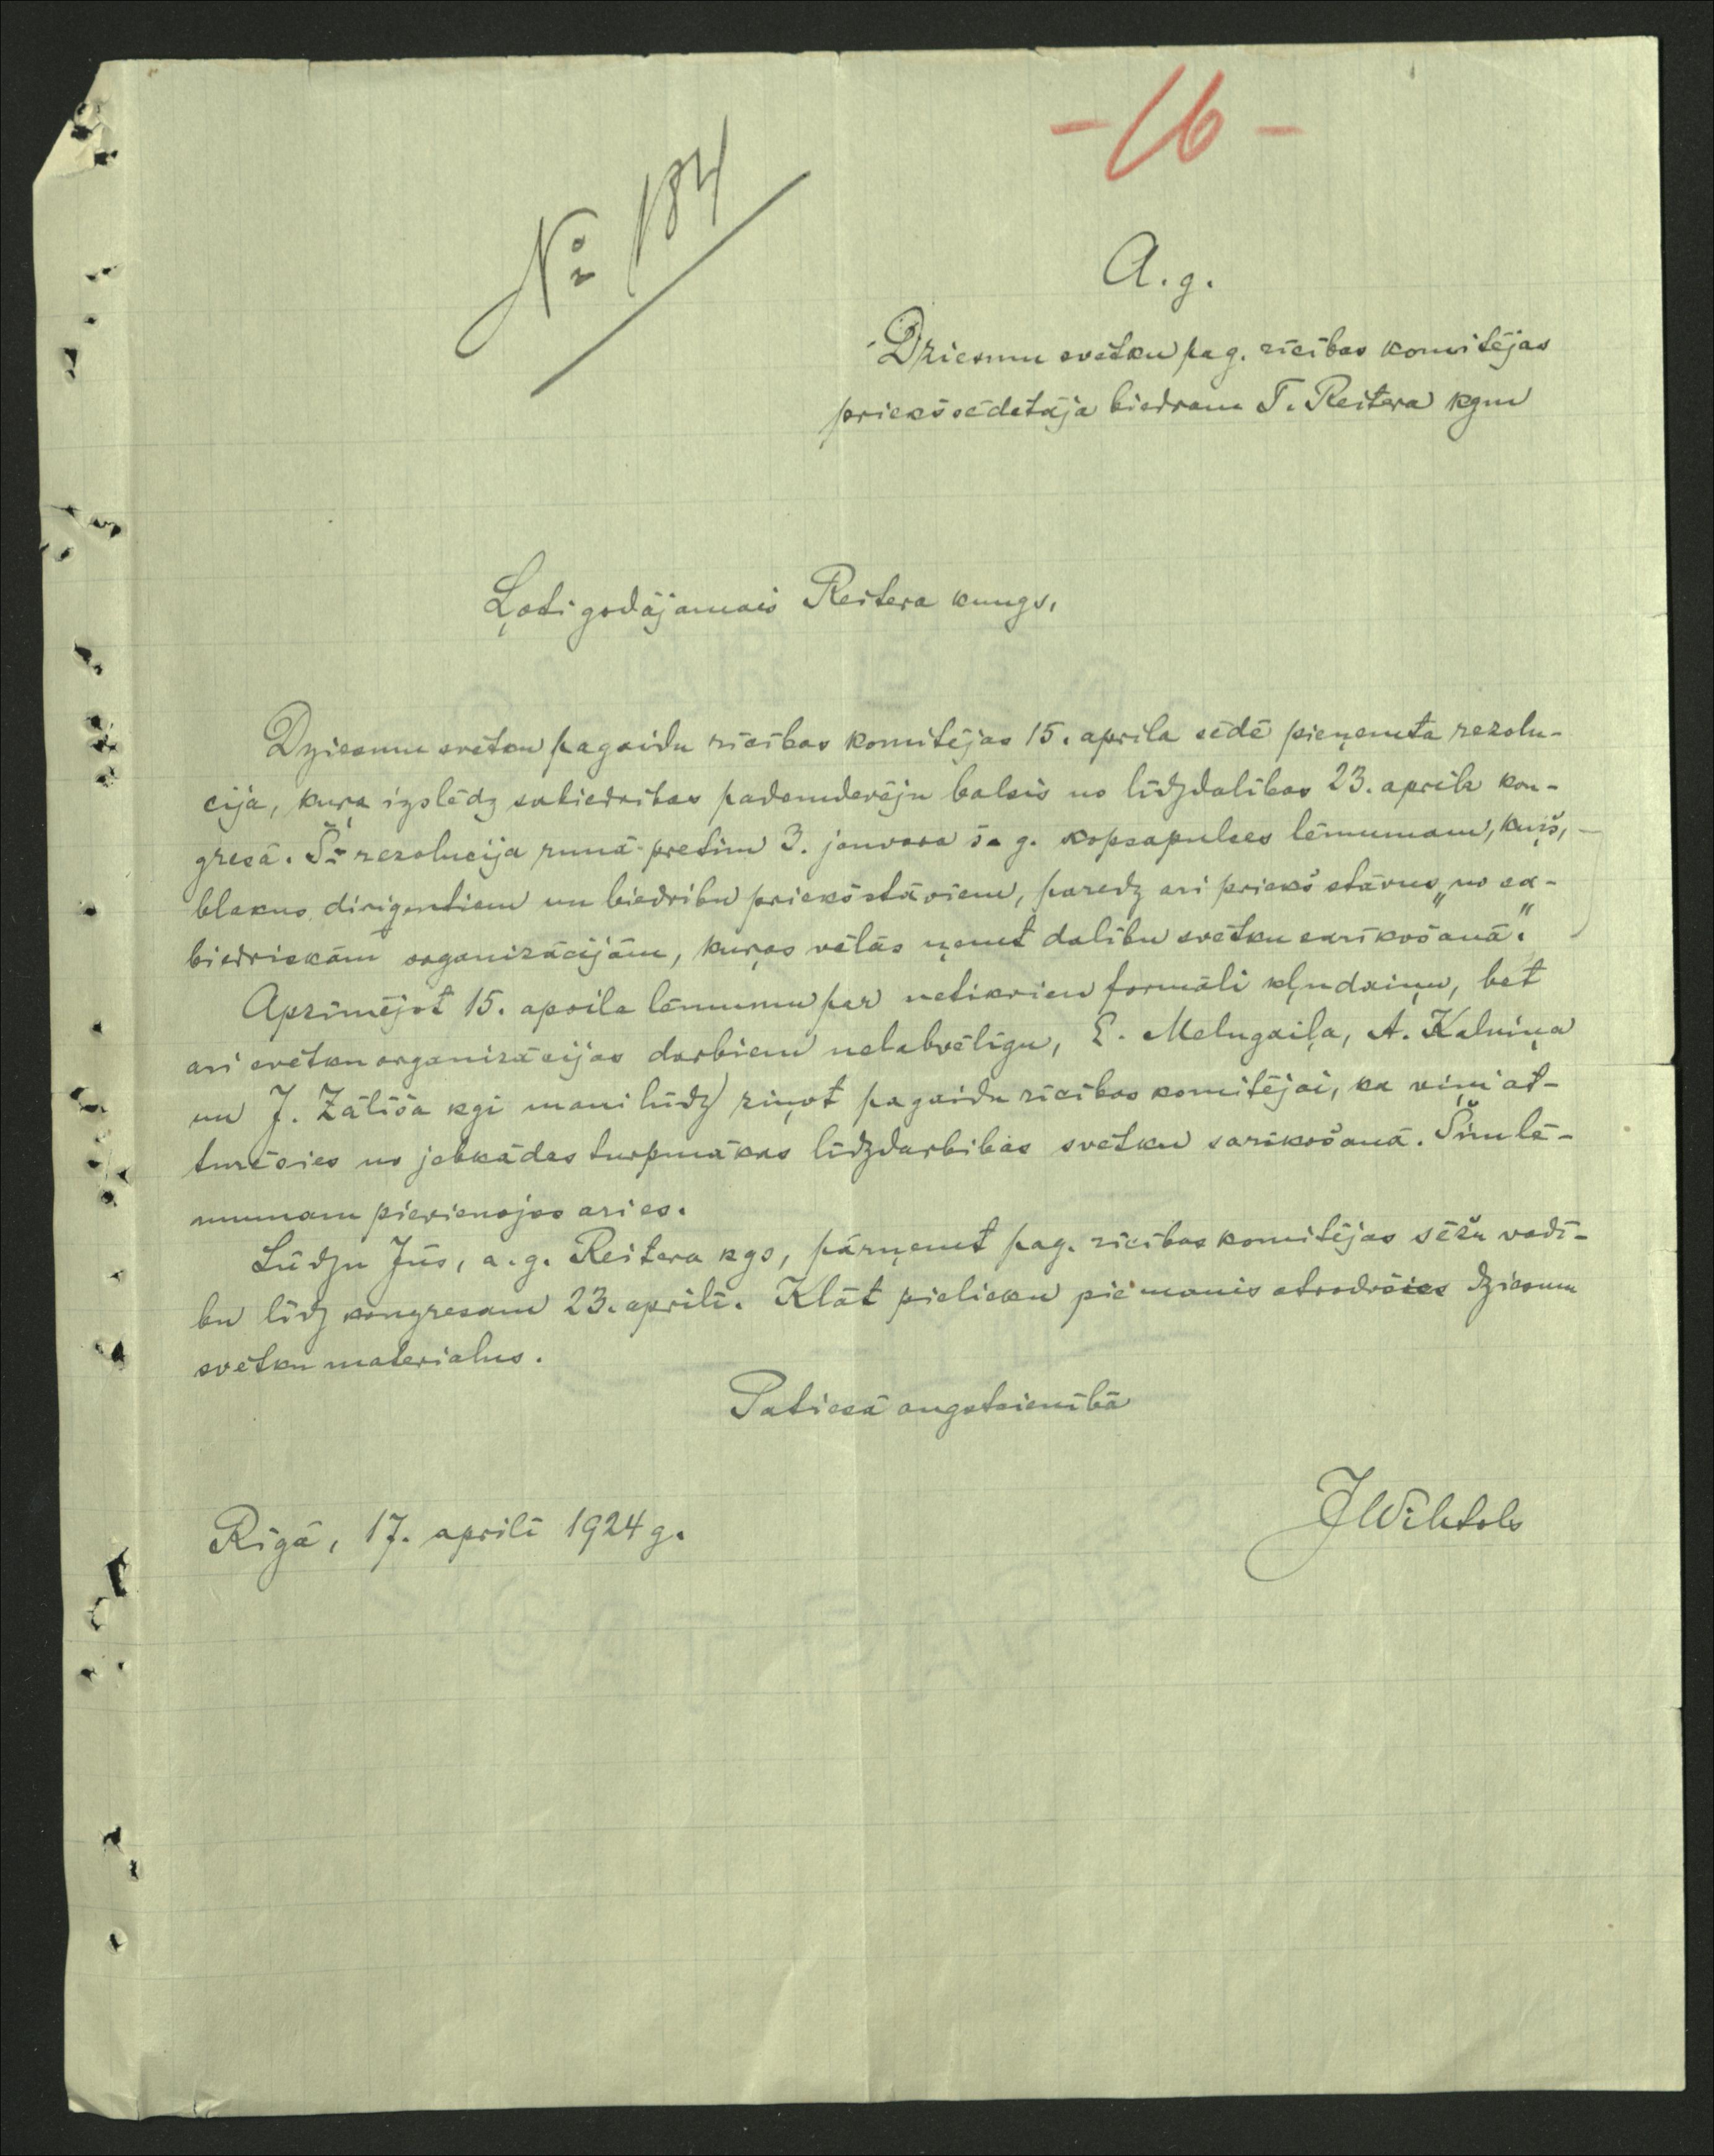 -16-
№ 184
A. g.
Dziesmu svētku pag. rīcības komitējas
priekšsēdētāja biedram T. Reitera kgm
Ļoti godājamais Reitera kungs,
Dziesmu svētku pagaidu rīcības komitējas 15. aprīļa sēdē pieņemta rezolu-
cija, kuŗa izslēdz sabiedrības padomdevēju balsis no līdzdalības 23. aprīļa kon-
gresā. Šī rezolucija runā pretim 3. janvara š. g. kopsapulces lēmumam, kuŗš,
blakus dirigentiem un biedrību priekšstāviem, paredz ari priekšstāvus „no sa-
biedriskām organizācijām, kuŗas vēlās ņemt dalību svētku sarīkošanā."
Apzīmējot 15. aprīļa lēmumu par netikvien formāli kļudaiņu, bet
ari svētku organizācijas darbiem nelabvēlīgu, E. Melngaiļa, A. Kalniņa
un J. Zālīša kgi mani lūdz ziņot pagaidu rīcības komitējai, ka viņi at-
turēsies no jebkādas turpmākas līdzdarbības svētku sarīkošanā. Šim lē-
mumam pievienojos ari es.
Lūdzu Jūs, a. g. Reitera kgs, pārņemt pag. rīcības komitējas sēžu vadī-
bu līdz kongresam 23. aprilī. Klāt pielieku pie manis atrodošies dziesmu
svētku materialus.
Patiesā augstcienībā
JWihtols
Rīgā, 17. aprilī 1924 g.